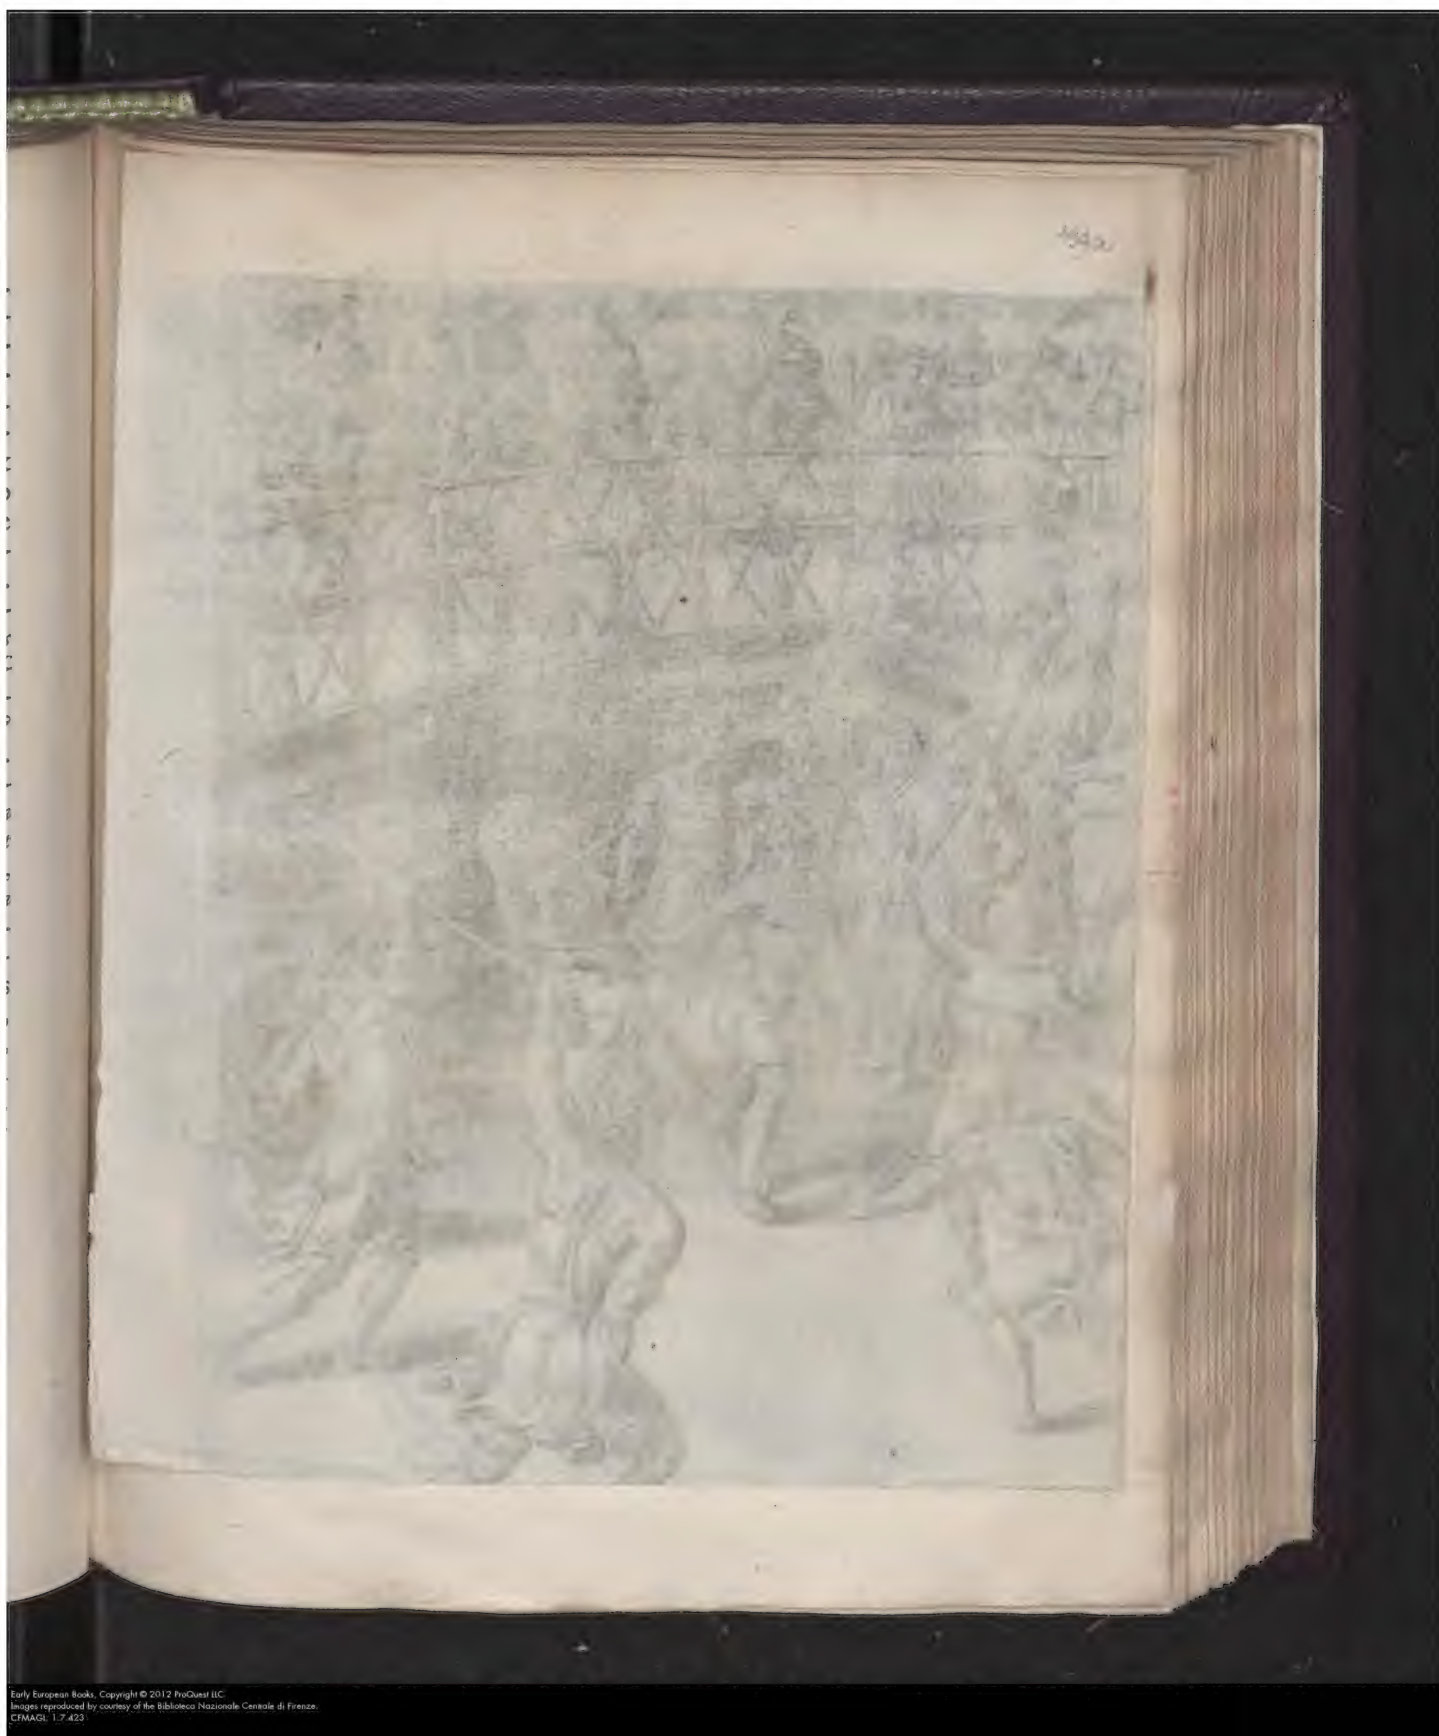 Early European Books, Copyright © 2012 ProQuest LLC.
Images reproduced by courtesy of the Biblioteca Nazionale Centrale di Firenze.
CFMAGL. 1.7.423